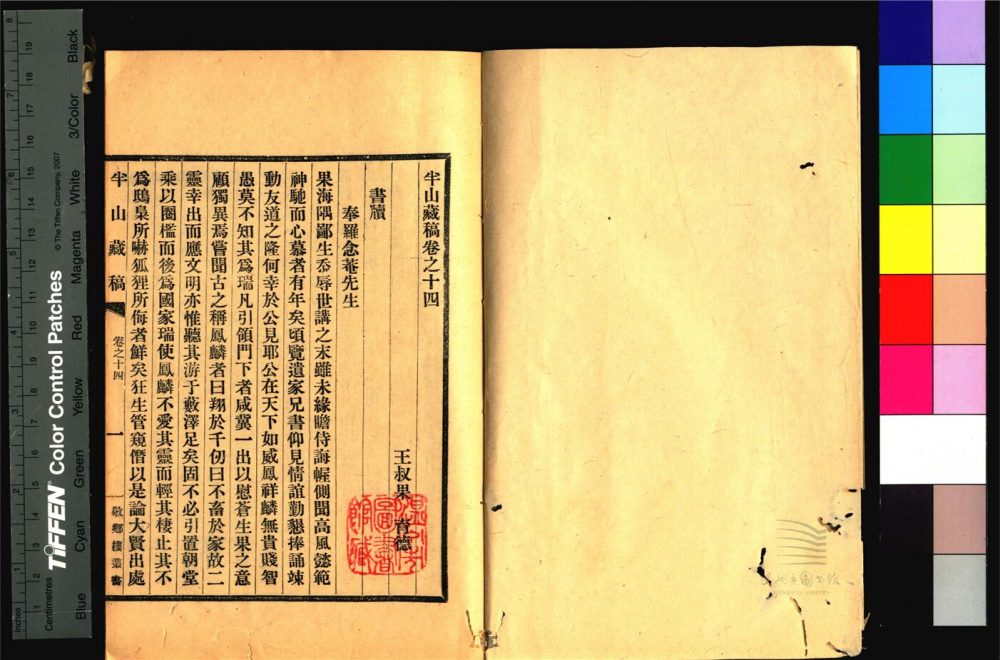 半山藏稿卷之十四
王叔果 育德
書牘
奉羅念菴先生
果海隅鄙生忝辱世講之末雖未緣瞻侍誨幄側聞高風懿範
神馳而心慕者有年矣頃覽遺家兄書仰見情誼勤懇捧誦竦
動友道之隆何幸於公見耶公在天下如威鳳祥麟無貴賤智
愚莫不知其爲瑞凡引領門下者咸冀一出以慰蒼生果之意
顧獨異焉嘗聞古之稱鳳麟者曰翔於千仞曰不畜於家故二
靈幸出而應文明亦惟聽其游于藪澤足矣固不必引置朝堂
乘以圈檻而後爲國家瑞使鳳麟不愛其靈而輕其棲止其不
爲鴟梟所嚇狐狸所侮者鮮矣狂生管窺僭以是論大賢出處
半山藏稿
卷之十四
一
敬鄉樓叢書
溫州市圖書館藏
WENZHOU LIBRARY
Inches
Centimetres
TIFFEN® Color Control Patches
© The Tiffen Company, 2007
Blue
Cyan
Green
Yellow
Red
Magenta
White
3/Color
Black